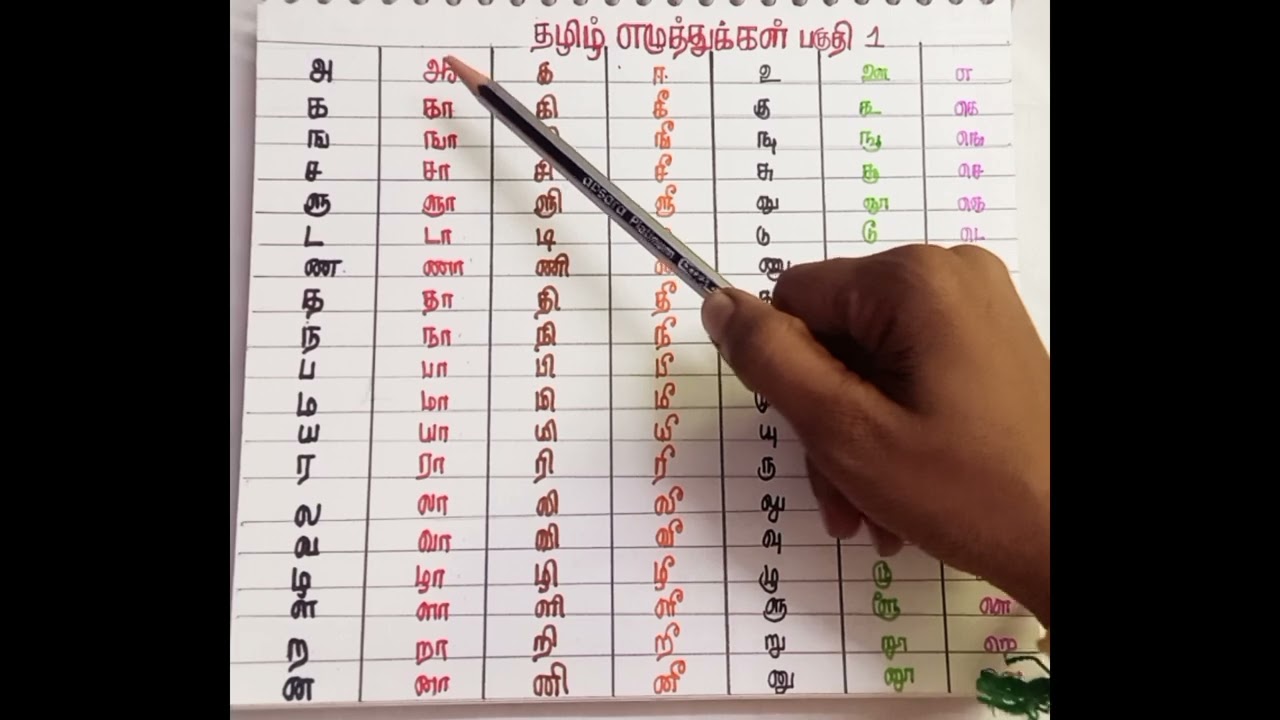 தமிழ் எழுத்துக்கள் பகுதி 1
அ ஆ இ ஈ உ ஊ எ
க கா கி கீ கு கூ கெ
ங ஙா ஙீ ஙு ஙூ ஙெ
ச சா சி சீ சு சூ செ
ஞ ஞா ஞி ஞீ ஞு ஞூ ஞெ
ட டா டி டு டூ டெ
ண ணா ணி ணு
த தா தி தீ
ந நா நி நீ
ப பா பி பீ
ம மா மி மீ
ய யா யி யீ யு
ர ரா ரி ரீ ரு
ல லா லி லீ லு
வ வா வி வீ வு
ழ ழா ழி ழீ ழு ழூ
ள ளா ளி ளீ ளு ளூ ளெ
ற றா றி றீ று றூ றெ
ன னா னி னீ னு னூ
apsara Platinum